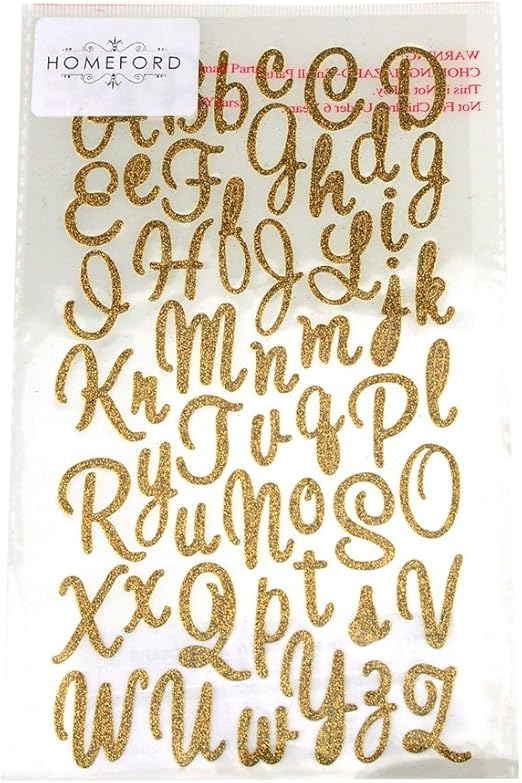 HOMEFORD
A b b c C D
E e F G h d g
I H f J L i k
K r M n m j
R y T v q P l
u N o S O
X x Q p t s V
W U w Y z Z
WARNING
CHOKING HAZARD-Small Parts
This is Not
Not For Children Under 6 Years